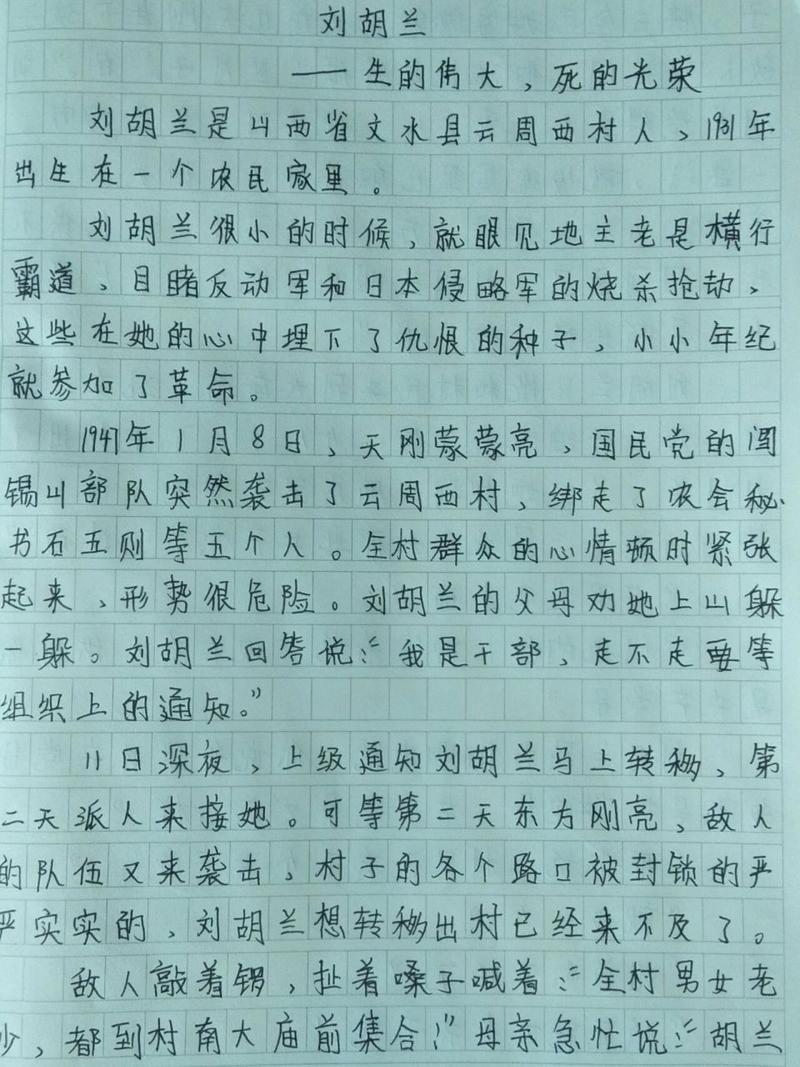 刘胡兰
——生的伟大,死的光荣
刘胡兰是山西省文水县云周西村人,1931年
出生在一个农民家里。
刘胡兰很小的时候,就眼见地主老是横行
霸道,目睹反动军和日本侵略军的烧杀抢劫,
这些在她的心中埋下了仇恨的种子,小小年纪
就参加了革命。
1947年1月8日,天刚蒙蒙亮,国民党的阎
锡山部队突然袭击了云周西村,绑走了农会秘
书石五则等五个人。全村群众的心情顿时紧张
起来,形势很危险。刘胡兰的父母劝她上山躲
一躲。刘胡兰回答说:“我是干部,走不走要等
组织上的通知。”
11日深夜,上级通知刘胡兰马上转移,第
二天派人来接她。可等第二天东方刚亮,敌人
的队伍又来袭击,村子的各个路口被封锁的严
严实实的,刘胡兰想转移出村已经来不及了。
敌人敲着锣,扯着嗓子喊着:“全村男女老
少,都到村南大庙前集合!”母亲急忙说:“胡兰